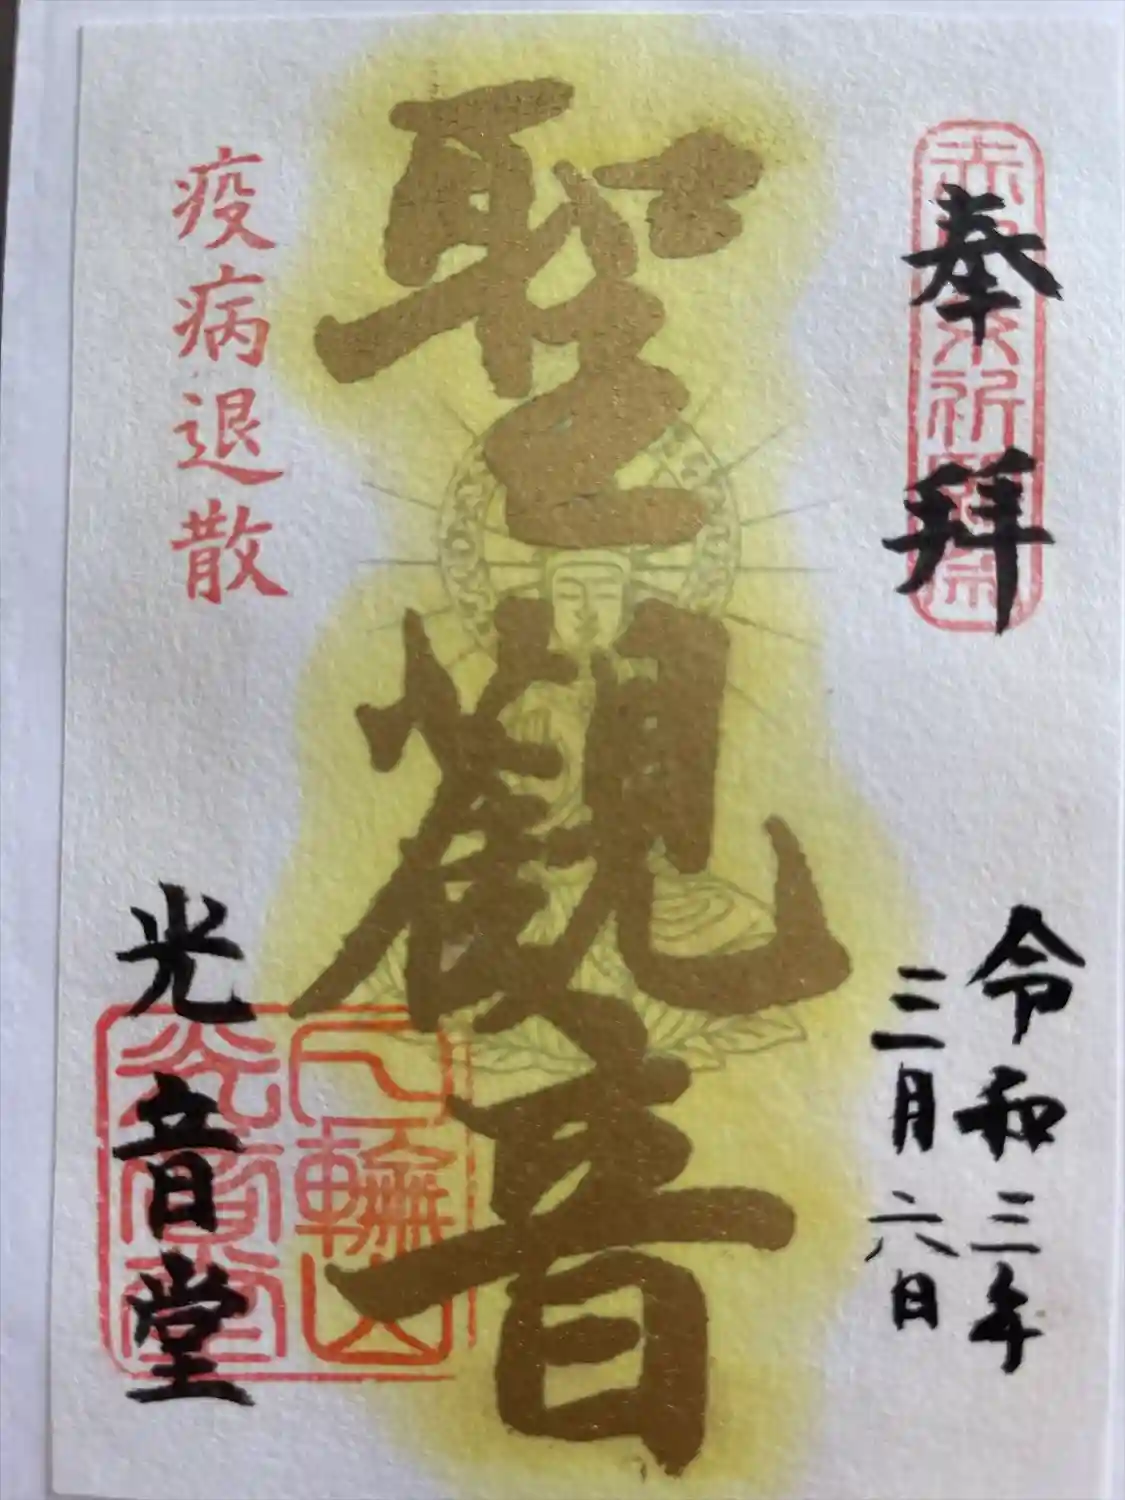 奉拝
令和三年
三月六日
聖觀音
疫病退散
光音堂